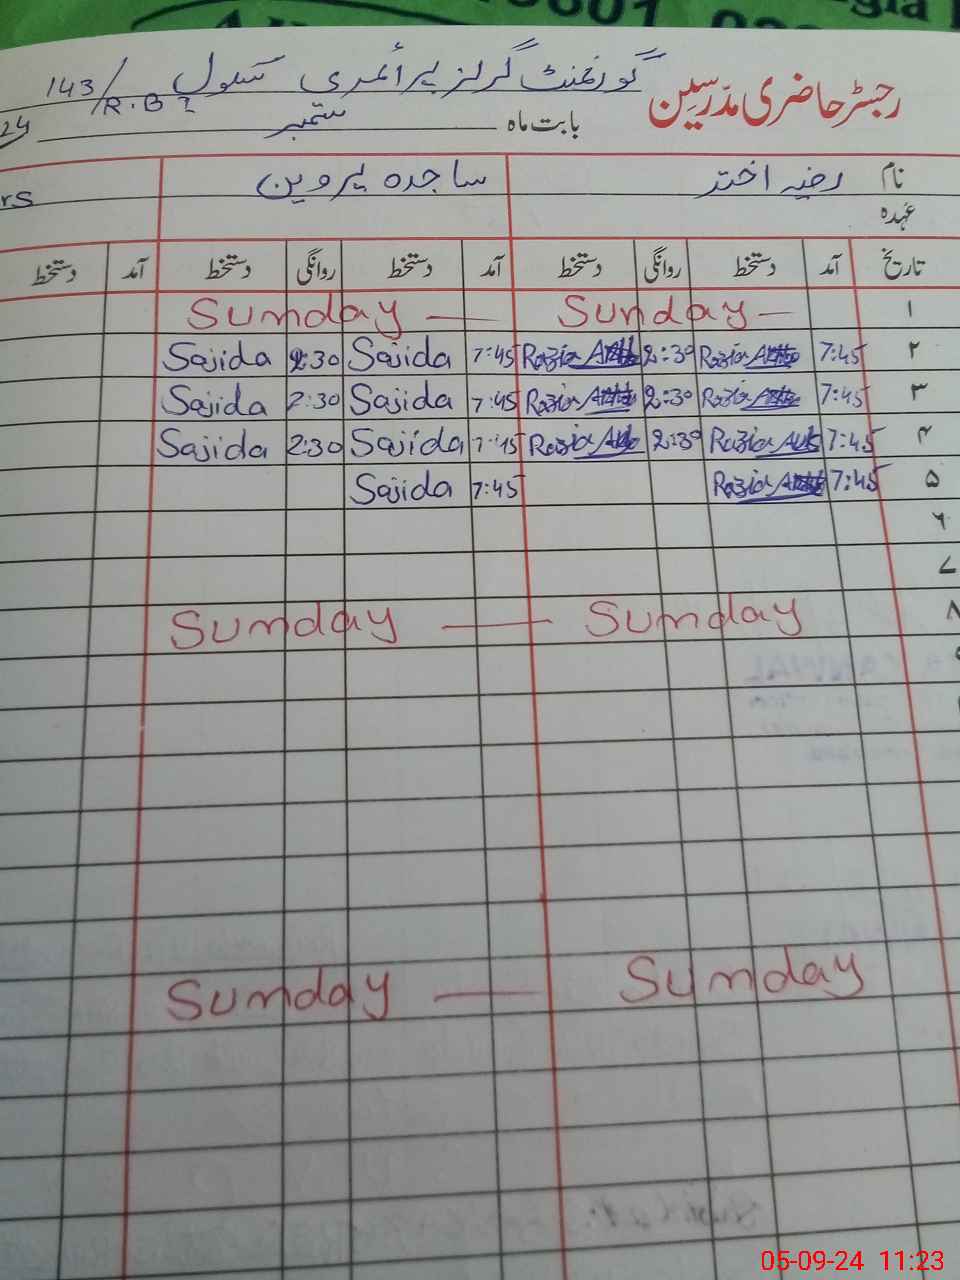 رجسٹر حاضری مدرسین گورنمنٹ گرلز پرائمری سکول 143/R.B
بابت ماہ ستمبر 24
نام رضیہ اختر ساجدہ پروین rs
عہدہ
تاریخ آمد دستخط روانگی دستخط آمد دستخط روانگی دستخط آمد دستخط
۱ Sunday — Sunday —
۲ 7:45 Razia 2:30 Razia 7:45 Sajida 2:30 Sajida
۳ 7:45 Razia 2:30 Razia 7:45 Sajida 2:30 Sajida
۴ 7:45 Razia 2:30 Razia 7:45 Sajida 2:30 Sajida
۵ 7:45 Razia 7:45 Sajida
۶
۷
۸ Sunday — Sunday
Sunday — Sunday
05-09-24 11:23